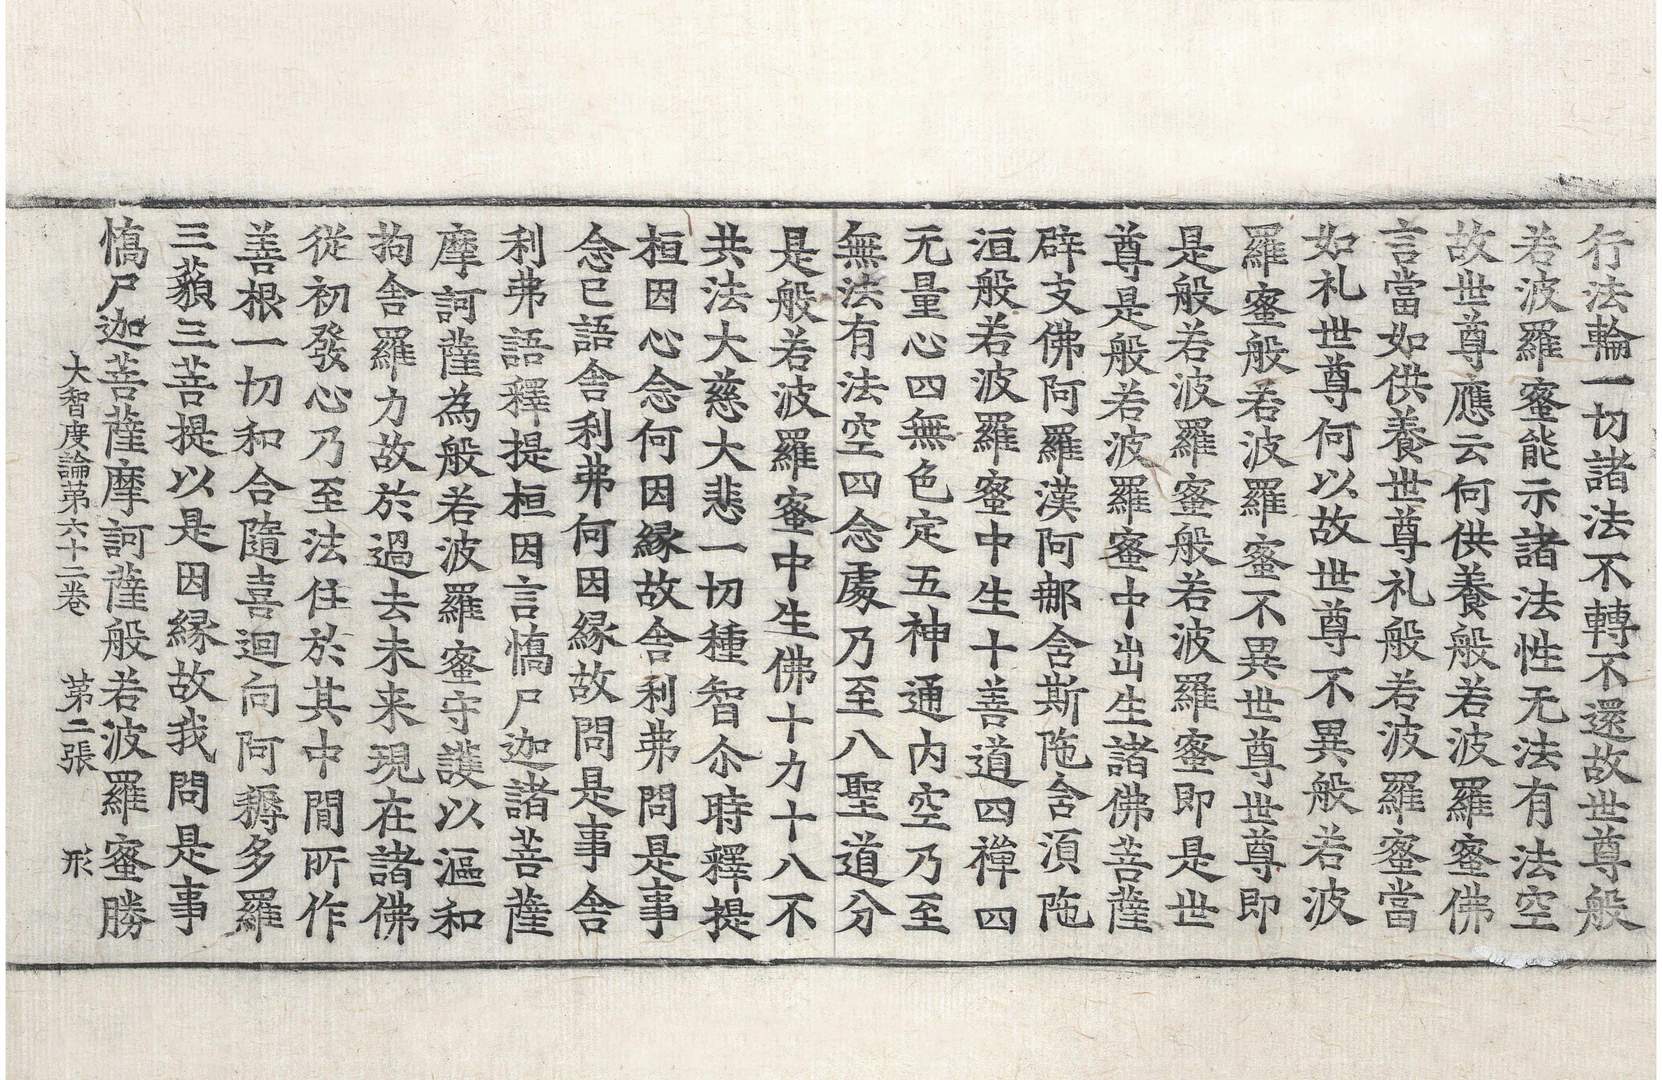 行法輪一切諸法不轉不還故世尊般
若波羅蜜能示諸法性无法有法空
故世尊應云何供養般若波羅蜜佛
言當如供養世尊礼般若波羅蜜當
如礼世尊何以故世尊不異般若波
羅蜜般若波羅蜜不異世尊世尊即
是般若波羅蜜般若波羅蜜即是世
尊是般若波羅蜜中出生諸佛菩薩
辟支佛阿羅漢阿那含斯陁含湏陁
洹般若波羅蜜中生十善道四禪四
无量心四無色定五神通内空乃至
無法有法空四念處乃至八聖道分
是般若波羅蜜中生佛十力十八不
共法大慈大悲一切種智尒時釋提
桓因心念何因縁故舍利弗問是事
念已語舍利弗何因縁故問是事舍
利弗語釋提桓因言憍尸迦諸菩薩
摩訶薩為般若波羅蜜守護以漚和
拘舍羅力故於過去未来現在諸佛
從初發心乃至法住於其中閒所作
善根一切和合隨喜迴向阿耨多羅
三藐三菩提以是因縁故我問是事
憍尸迦菩薩摩訶薩般若波羅蜜勝
大智度論第六十二卷 第二張 形